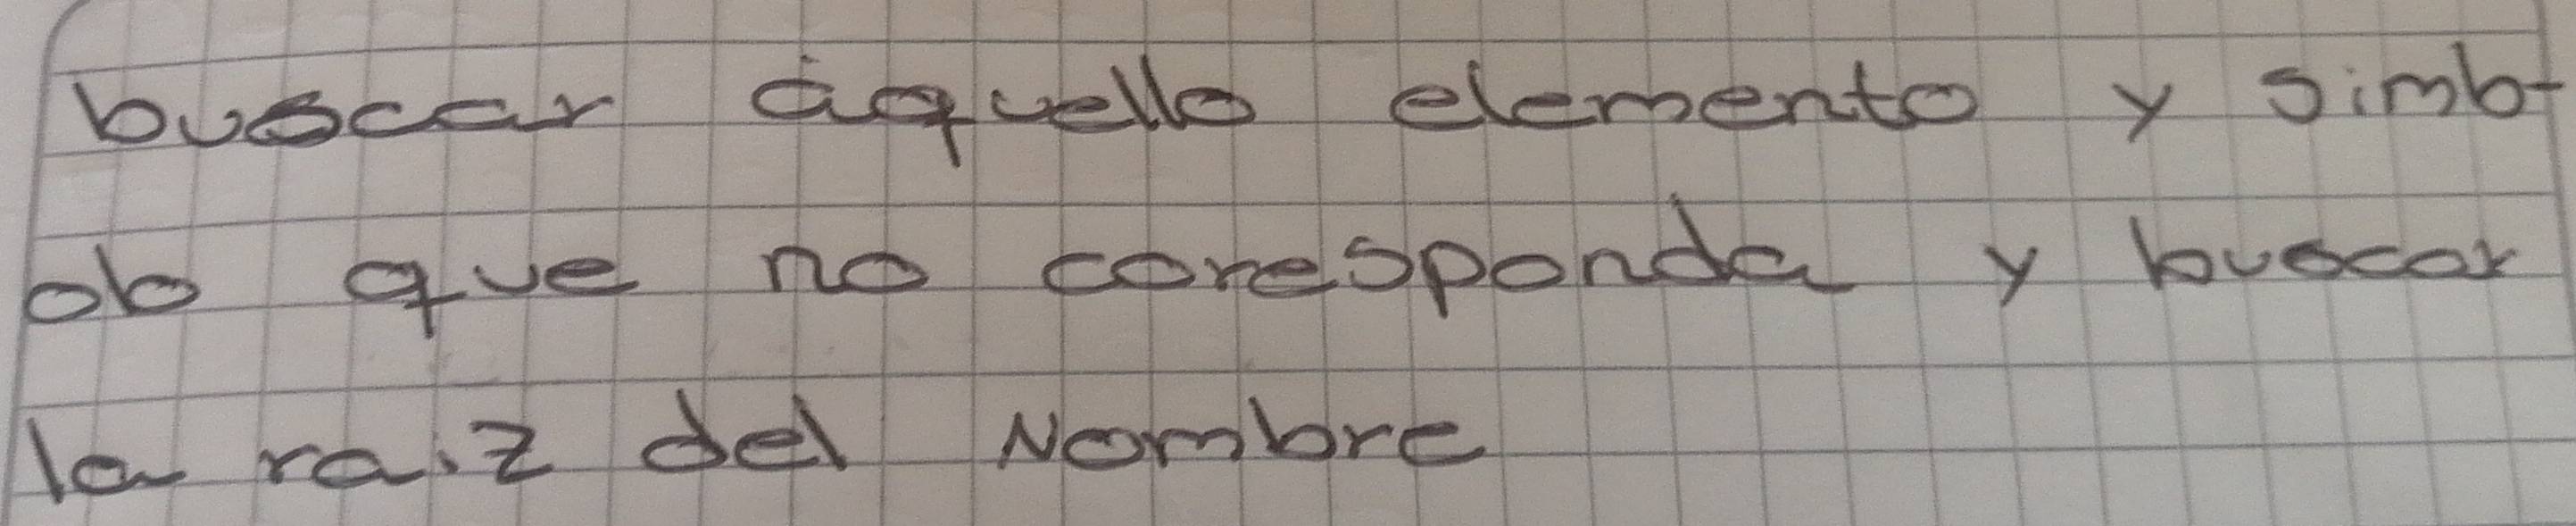 buscar aquello elemento y simb-
olo que no coresponda y buscar
la raiz del Nombre